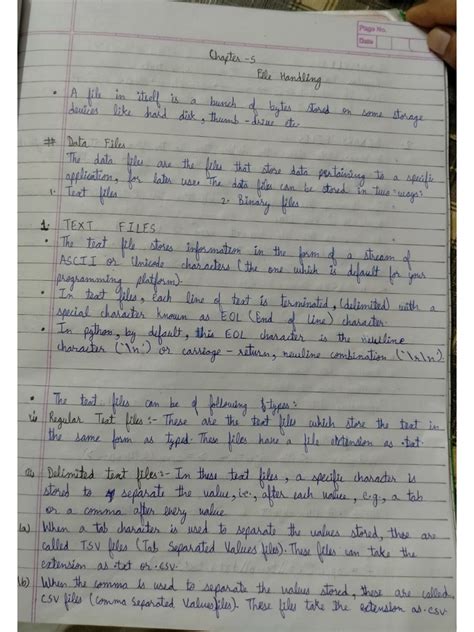 Page No.
Date
Chapter - 5
File Handling
• A file in itself is a bunch of bytes stored on some storage
devices like hard disk, thumb-drive etc.
# Data Files
The data files are the files that store data pertaining to a specific
application, for later use. The data files can be stored in two ways:
1. Text files 2. Binary files
1. TEXT FILES
• The text file stores information in the form of a stream of
ASCII or Unicode characters (the one which is default for your
programming platform).
• In text files, each line of text is terminated, (delimited) with a
special character known as EOL (End of line) character.
• In python, by default, this EOL character is the newline
character ('\n') or carriage-return, newline combination ('\r\n').
• The text files can be of following types:
i) Regular Text files:- These are the text files which store the text in
the same form as typed. These files have a file extension as .txt.
Delimited text files:- In these text files, a specific character is
stored to separate the value, i.e., after each value, e.g., a tab
or a comma after every value
(a) When a tab character is used to separate the values stored, these are
called TSV files (Tab Separated Values files). These files can take the
extension as .txt or .csv.
(b) When the comma is used to separate the values stored, these are called
CSV files (Comma Separated Values files). These files take the extension as .csv